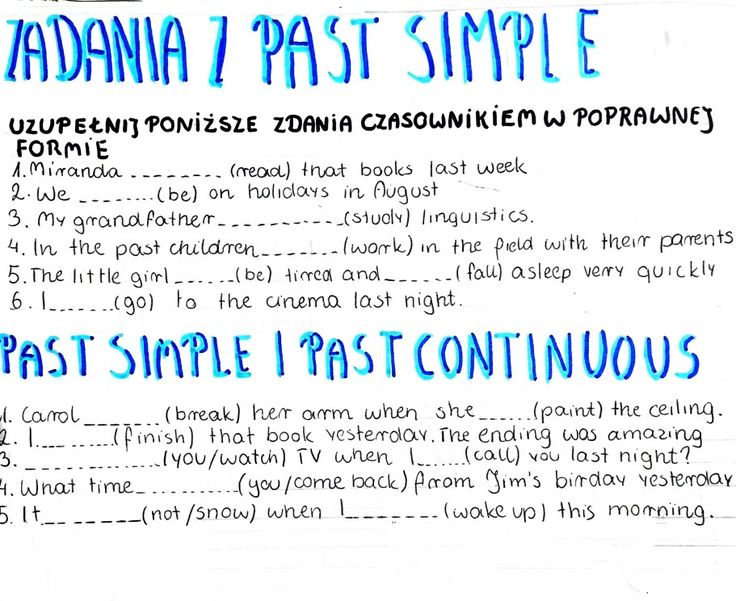 ZADANIA Z PAST SIMPLE
UZUPEŁNIJ PONIŻSZE ZDANIA CZASOWNIKIEM W POPRAWNEJ
FORMIE
1. Miranda _ _ _ _ _ _ _ _ (read) that books last week
2. We _ _ _ _ _ _ _ _ (be) on holidays in August
3. My grandfather _ _ _ _ _ _ _ _ _ _ _ (study) linguistics.
4. In the past children _ _ _ _ _ _ _ (work) in the field with their parents
5. The little girl _ _ _ _ _ _ (be) tired and _ _ _ _ _ _ (fall) asleep very quickly
6. I _ _ _ _ _ _ (go) to the cinema last night.
PAST SIMPLE I PAST CONTINUOUS
1. Carol _ _ _ _ _ _ _ (break) her arm when she _ _ _ _ _ (paint) the ceiling.
2. I _ _ _ _ _ _ _ (finish) that book yesterday. The ending was amazing
3. _ _ _ _ _ _ _ _ _ _ _ (you/watch) TV when I _ _ _ _ _ (call) you last night?
4. What time _ _ _ _ _ _ _ _ _ (you/come back) from Jim's birday yesterday
5. It _ _ _ _ _ _ _ _ (not/snow) when I _ _ _ _ _ _ _ _ (wake up) this morning.